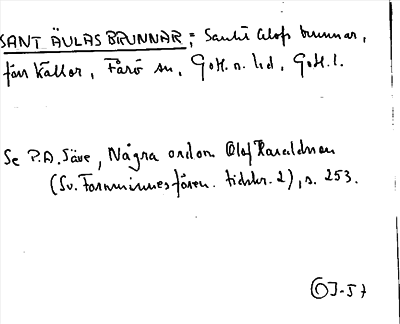 SANT ÄULAS BRUNNAR; Sankt Olofs brunnar,
fem källor, Fårö sn, Gotl. n. hd, Gotl. l.
Se P.A. Säve, Några ord om Olof Haraldson
(Sv. Fornminnesfören. tidskr. 2), s. 253.
OJ-57